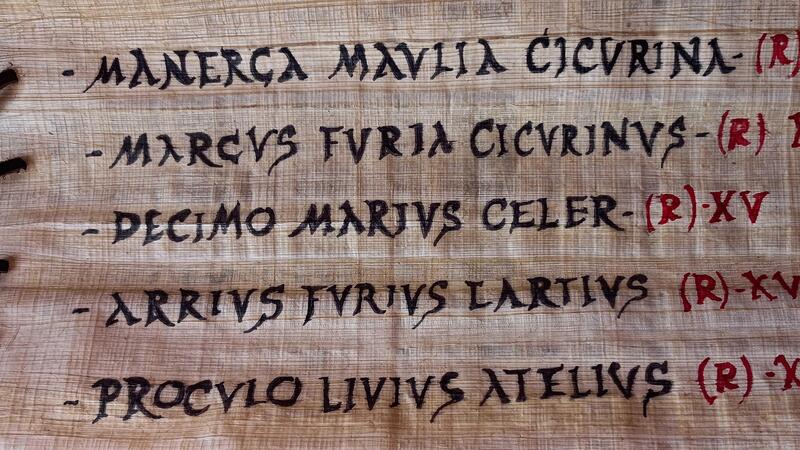 - MANERCA MAVLIA CICVRINA- (R)
- MARCVS FVRIA CICVRINVS- (R)
- DECIMO MARIVS CELER- (R)-XV
- ARRIVS FVRIVS LARTIVS (R)-XV
- PROCVLO LIVIVS ATELIVS (R)-X